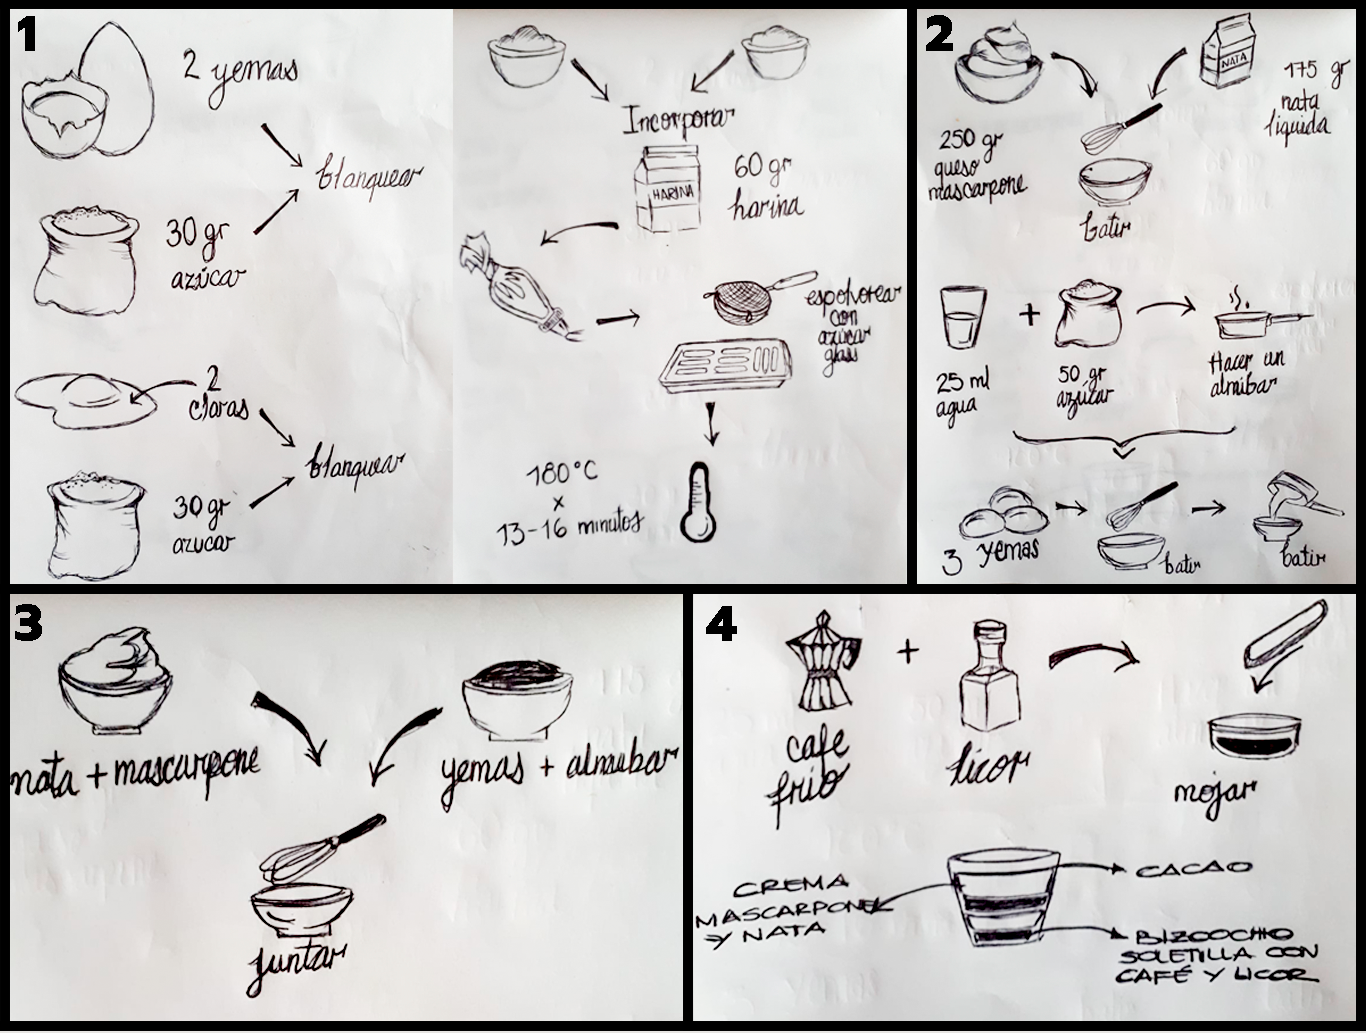 1
2 yemas
30 gr
azúcar
blanquear
2
claras
30 gr
azucar
blanquear
Incorporar
HARINA
60 gr
harina
espolvorear
con
azúcar
glass
180°C
x
13-16 minutos
2
250 gr
queso
mascarpone
NATA
175 gr
nata
liquida
batir
25 ml
agua
+
50 gr
azúcar
Hacer un
almibar
3 yemas
batir
batir
3
nata + mascarpone
yemas + almibar
juntar
4
cafe
frio
+
licor
mojar
CREMA
MASCARPONE
Y NATA
CACAO
BIZCOCHO
SOLETILLA CON
CAFÉ Y LICOR